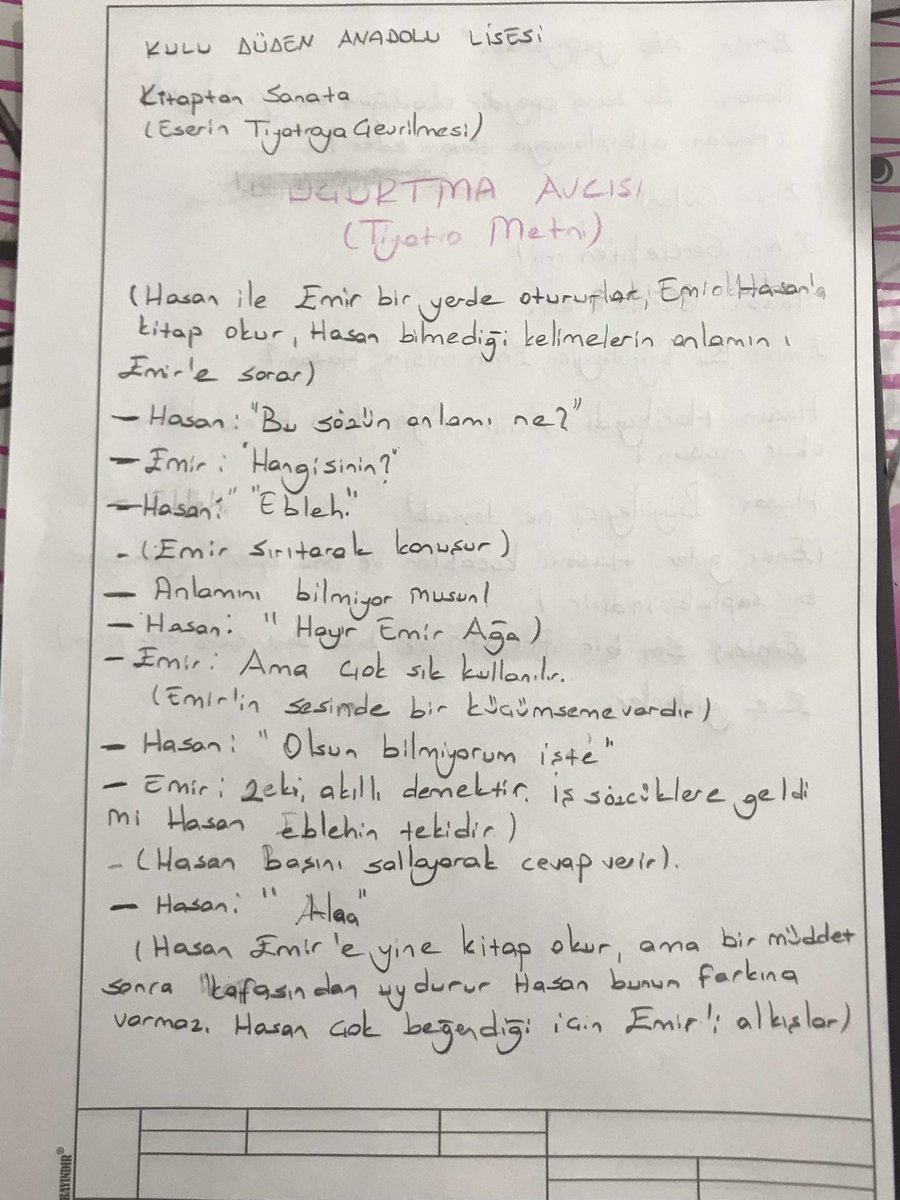 KULU DÜDEN ANADOLU LİSESİ
Kitaptan Sanata
(Eserin Tiyatroya Çevrilmesi)
UÇURTMA AVCISI
(Tiyatro Metni)
(Hasan ile Emir bir yerde otururlar, Emir Hasan'a
kitap okur, Hasan bilmediği kelimelerin anlamını
Emir'e sorar)
— Hasan: "Bu sözün anlamı ne?"
— Emir: "Hangisinin?"
— Hasan: "Ebleh."
- (Emir sırıtarak konuşur)
— Anlamını bilmiyor musun!
— Hasan: " Hayır Emir Ağa)
— Emir: Ama çok sık kullanılır.
(Emir'in sesinde bir küçümseme vardır)
— Hasan: " Olsun bilmiyorum işte"
— Emir: Zeki, akıllı demektir. İş sözcüklere geldi
mi Hasan eblehin tekidir.)
- (Hasan başını sallayarak cevap verir).
— Hasan: " Alaa"
(Hasan Emir'e yine kitap okur, ama bir müddet
sonra kafasından uydurur Hasan bunun farkına
varmaz. Hasan çok beğendiği için Emir'i alkışlar)
BAYINDIR®